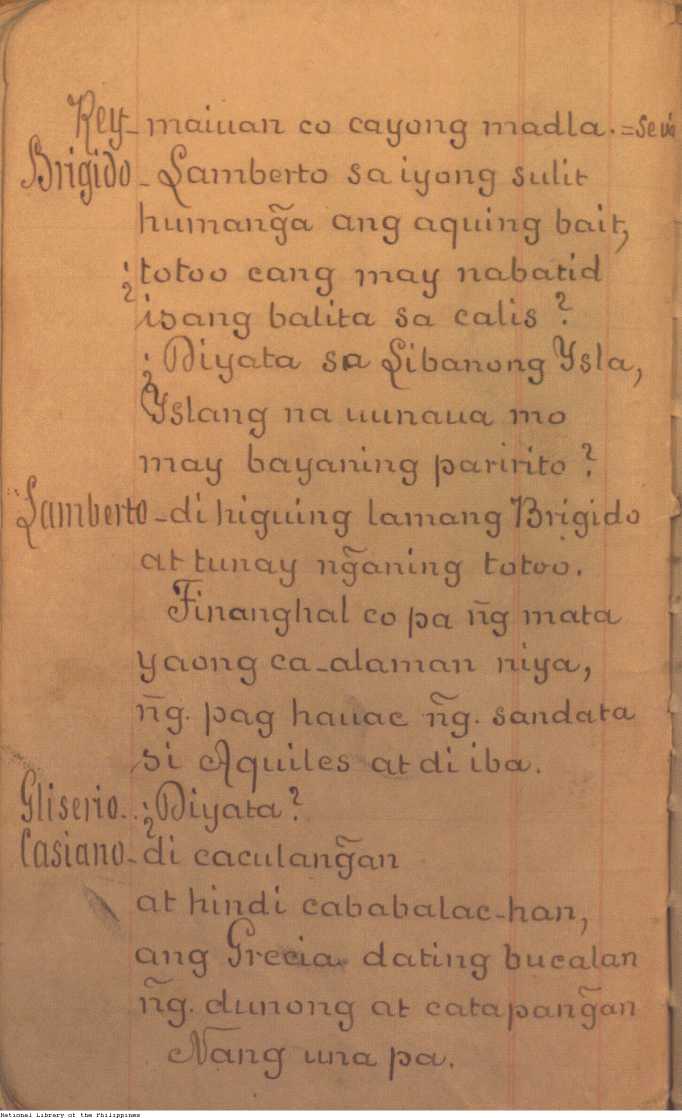 Rey- maiuan co cayong madla. = Se vá
Brigido - Lamberto sa iyong sulit
humang̃a ang aquing bait,
¿totoo cang may nabatid
isang balita sa calis?
¿Diyata sa Libanong Ysla,
Yslang na uunaua mo
may bayaning paririto?
Lamberto - di higuing lamang Brigido
at tunay ng̃aning totoo.
Finanghal co pa n̄g mata
yaong ca-alaman niya,
n̄g. pag hauac n͠g. sandata
si Aquiles at di iba.
Gliserio.. ¿Diyata?
Casiano - di caculang̃an
at hindi cababalac-han,
ang Grecia dating bucalan
n͠g. dunong at catapang̃an
Nang una pa.
National Library of the Philippines